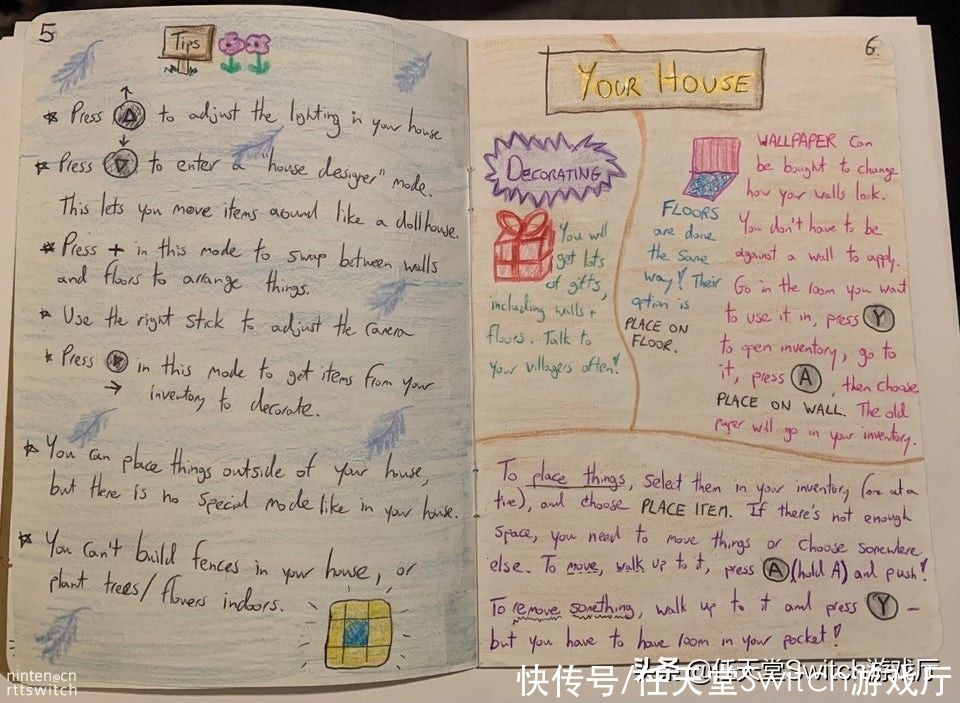 5
Tips
* Press △ to adjust the lighting in your house
* Press ▽ to enter a "house designer" mode.
This lets you move items around like a dollhouse.
* Press + in this mode to swap between walls
and floors to arrange things.
* Use the right stick to adjust the camera
* Press ▷ in this mode to get items from your
→ inventory to decorate.
* You can place things outside of your house,
but there is no special mode like in your house.
* You can't build fences in your house, or
plant trees/flowers indoors.
6.
YOUR HOUSE
DECORATING
You will
get lots
of gifts,
including walls +
floors. Talk to
your villagers often!
FLOORS
are done
the same
way! Their
option is
PLACE ON
FLOOR.
WALLPAPER can
be bought to change
how your walls look.
You don't have to be
against a wall to apply.
Go in the room you want
to use it in, press Y
to open inventory, go to
it, press A, then choose
PLACE ON WALL. The old
paper will go in your inventory.
To place things, select them in your inventory (one at a
time), and choose PLACE ITEM. If there's not enough
space, you need to move things or choose somewhere
else. To move, walk up to it, press A (hold A) and push!
To remove something, walk up to it and press Y –
but you have to have room in your pocket!
ninten@cn
rttswitch
头条 @任天堂Switch游戏厅
快传号/任天堂Switch游戏厅